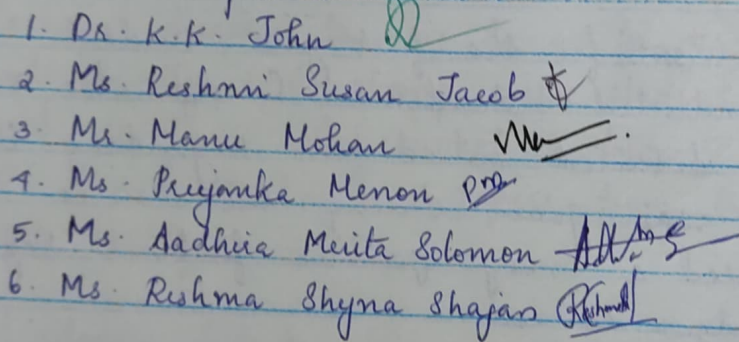 1. Dr. K.K. John
2. Ms. Reshmi Susan Jacob
3. Mr. Manu Mohan
4. Ms. Priyanka Menon
5. Ms. Aadhria Merita Solomon
6. Ms. Reshma Shyna Shajan